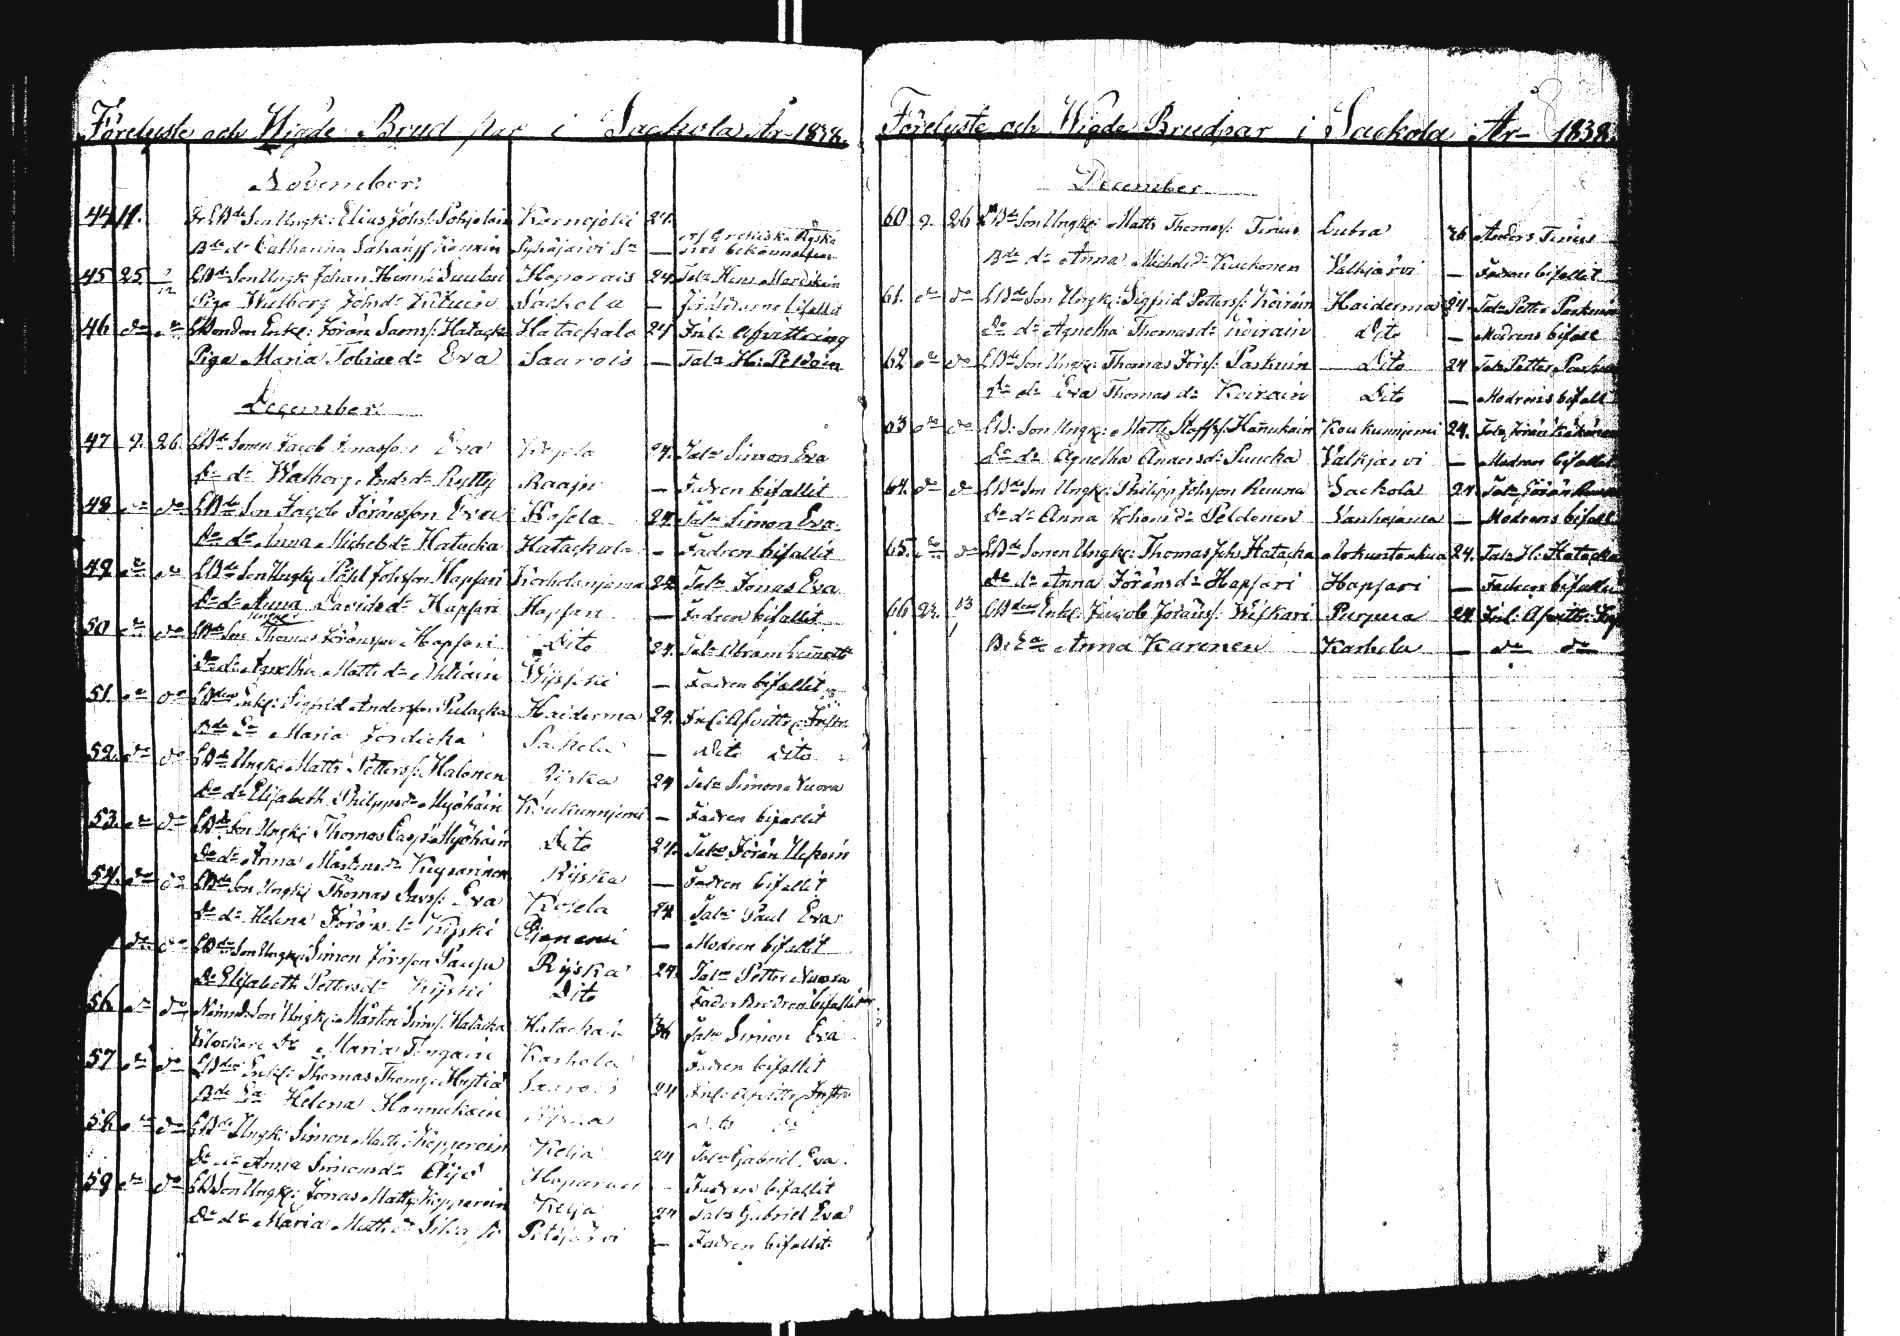 Förelyste och Wigde Brud par i Sackola År 1838.
November:
44 11. Bde Son Ungk: Elias Johs: Pohjolain Kernojoki 24.
Bde dr Catharina Pyhäjärvi Sn — Grekiska Ryska
45 25 2/12 LBde Son Ungk Johan Henr: Suutari Haparais 24. Taln Henr Mardikain
Piga Walborg Johdr Sackola — Föräldrarne bifallit
46 do do LBonden Enkl: Jöran Sams: Hatacka Hatackala 24 Inl: Afvittring
Piga Maria Tobiaedr Eva Saarois — Taln H: Peldoin
December.
47 9. 26. LBde Sonen Jacob Jonasson Eva Kosela 24. Taln Simon Eva
Dr dr Walborg Andrsdr Rytty Raaju — Fadren bifallit
48 do do LBde Son Jacob Jöransson Eva Kosela 24. Taln Simon Eva.
Dr dr Anna Michelsdr Hatacka Hatackala — Fadren bifallit
49 do do LBde Son Ungk: Påhl Johsson Hapsari Korholanjema 24. Taln Jonas Eva
Dr dr Anna Davidsdr Hapsari Hapsari — Fadren bifallit
50 do do LBde Son Ungk: Thomas Jöransson Hapsari Dito 24. Taln Abram
Dr dr Agnetha Mattsdr — Fadren bifallit
51 do do LBden Enkl: Sigfrid Andersson Pulacka Haiderma 24. Inl: Afvittr: Instr:
Bde Ea Maria Jordicka Sackola — Dito Dito
52 do do LBde Ungk: Matts Petterss: Halonen Rijska 24 Taln Simon Nuora
Dr dr Elisabeth Philppsdr Myöhäin Koukunnjemi — Fadren bifallit
53 do do LBde Son Ungk: Thomas Casps: Myöhäin Dito 24. Taln Jöran Ukkoin
Dr dr Anna Mårtensdr Kuparinen Rijska — Fadren bifallit
54 do do LBde Son Ungk: Thomas Davss: Eva Kosela 24 Taln Paul Eva
Dr dr Helena Jöransdr Kijski — Modren bifallit
do do LBde Son Ungk: Simon Jörsson Paupu Rijska 24. Taln Petter Nuora
Dr Elisabeth Pettersdr Kijski Dito Fader Brodren bifallit
56 do do Nämnd. Son Ungk: Mårten Sims: Hatacka Hatackala 36 Taln Simon Eva
Klockare Dr Maria Pongain Karhola Fadren bifallit
57 do do LBden Enkl: Thomas Thoms: Hystiä Saarois 24 Inl: Afvittr: Instr:
Bde Ea Helena Hannukain Rijska Dito do
58 do do LBde Ungk: Simon Matts: Kopperoin Kelja 24 Taln Gabriel Eva.
Dr dr Anna Simonsdr Äijö Haparais — Fadren bifallit
59 do do LB Son Ungk: Jonas Matts: Kopperoin Kelja 24 Taln Gabriel Eva
Dr dr Maria Mattsdr Petäjärvi — Fadren bifallit.
Förelyste och Wigde Brudpar i Sackola År 1838.
December
60 9. 26 LBde Son Ungk: Matts Thomass: Tirius Lubra 36 Anders Tirius
Bde dr Anna Michelsdr Kuckonen Valkjärvi — Fadren bifallit
61. do do LBde Son Ungk: Sigfrid Petterss: Koirain Haiderma 24 Taln Petter Paskuin
Dr dr Agnetha Thomasdr Koirain Dito — Modrens bifall
62 do do LBde Son Ungk: Thomas Jörs: Paskuin Dito 24 Taln Petter Paskuin
Dr dr Eva Thomasdr Koirain Dito — Modrens bifall
63 do do LB: Son Ungk: Matts Staffs: Hannukain Koukunnjemi 24. Taln Jöran
Dr dr Agnetha Andersdr Puucka Valkjärvi — Modren bifallit
64. do do LBde Son Ungk: Philipp Johsson Ruuna Sackola 24 Taln Jöran
Dr dr Anna Johansdr Peldonen Vanhajama — Modrens bifall
65. do do LBde Sonen Ungk: Thomas Johs Hatacka 24. Taln H: Hatacka
Dr dr Anna Jöransdr Hapsari Hapsari — Fadren bifallit
66 22. 13 LBden Enkl: Jacob Jöranss: Wilkari Purpua 24 Inl: Afvittr:
B: Ea Anna Karonen Karhola — do do